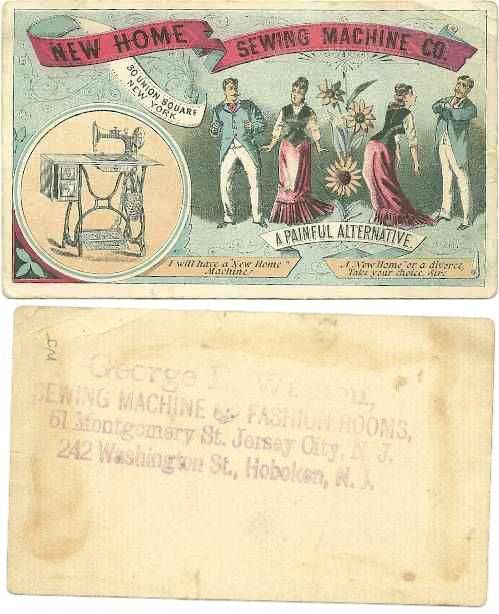 NEW HOME SEWING MACHINE CO.
30 UNION SQUARE
NEW YORK
A PAINFUL ALTERNATIVE
I will have a "New Home"
Machine!
A "New Home" or a divorce,
Take your choice, Sir.
George
SEWING MACHINE AND FASHION ROOMS,
51 Montgomery St. Jersey City, N. J.
242 Washington St., Hoboken, N. J.